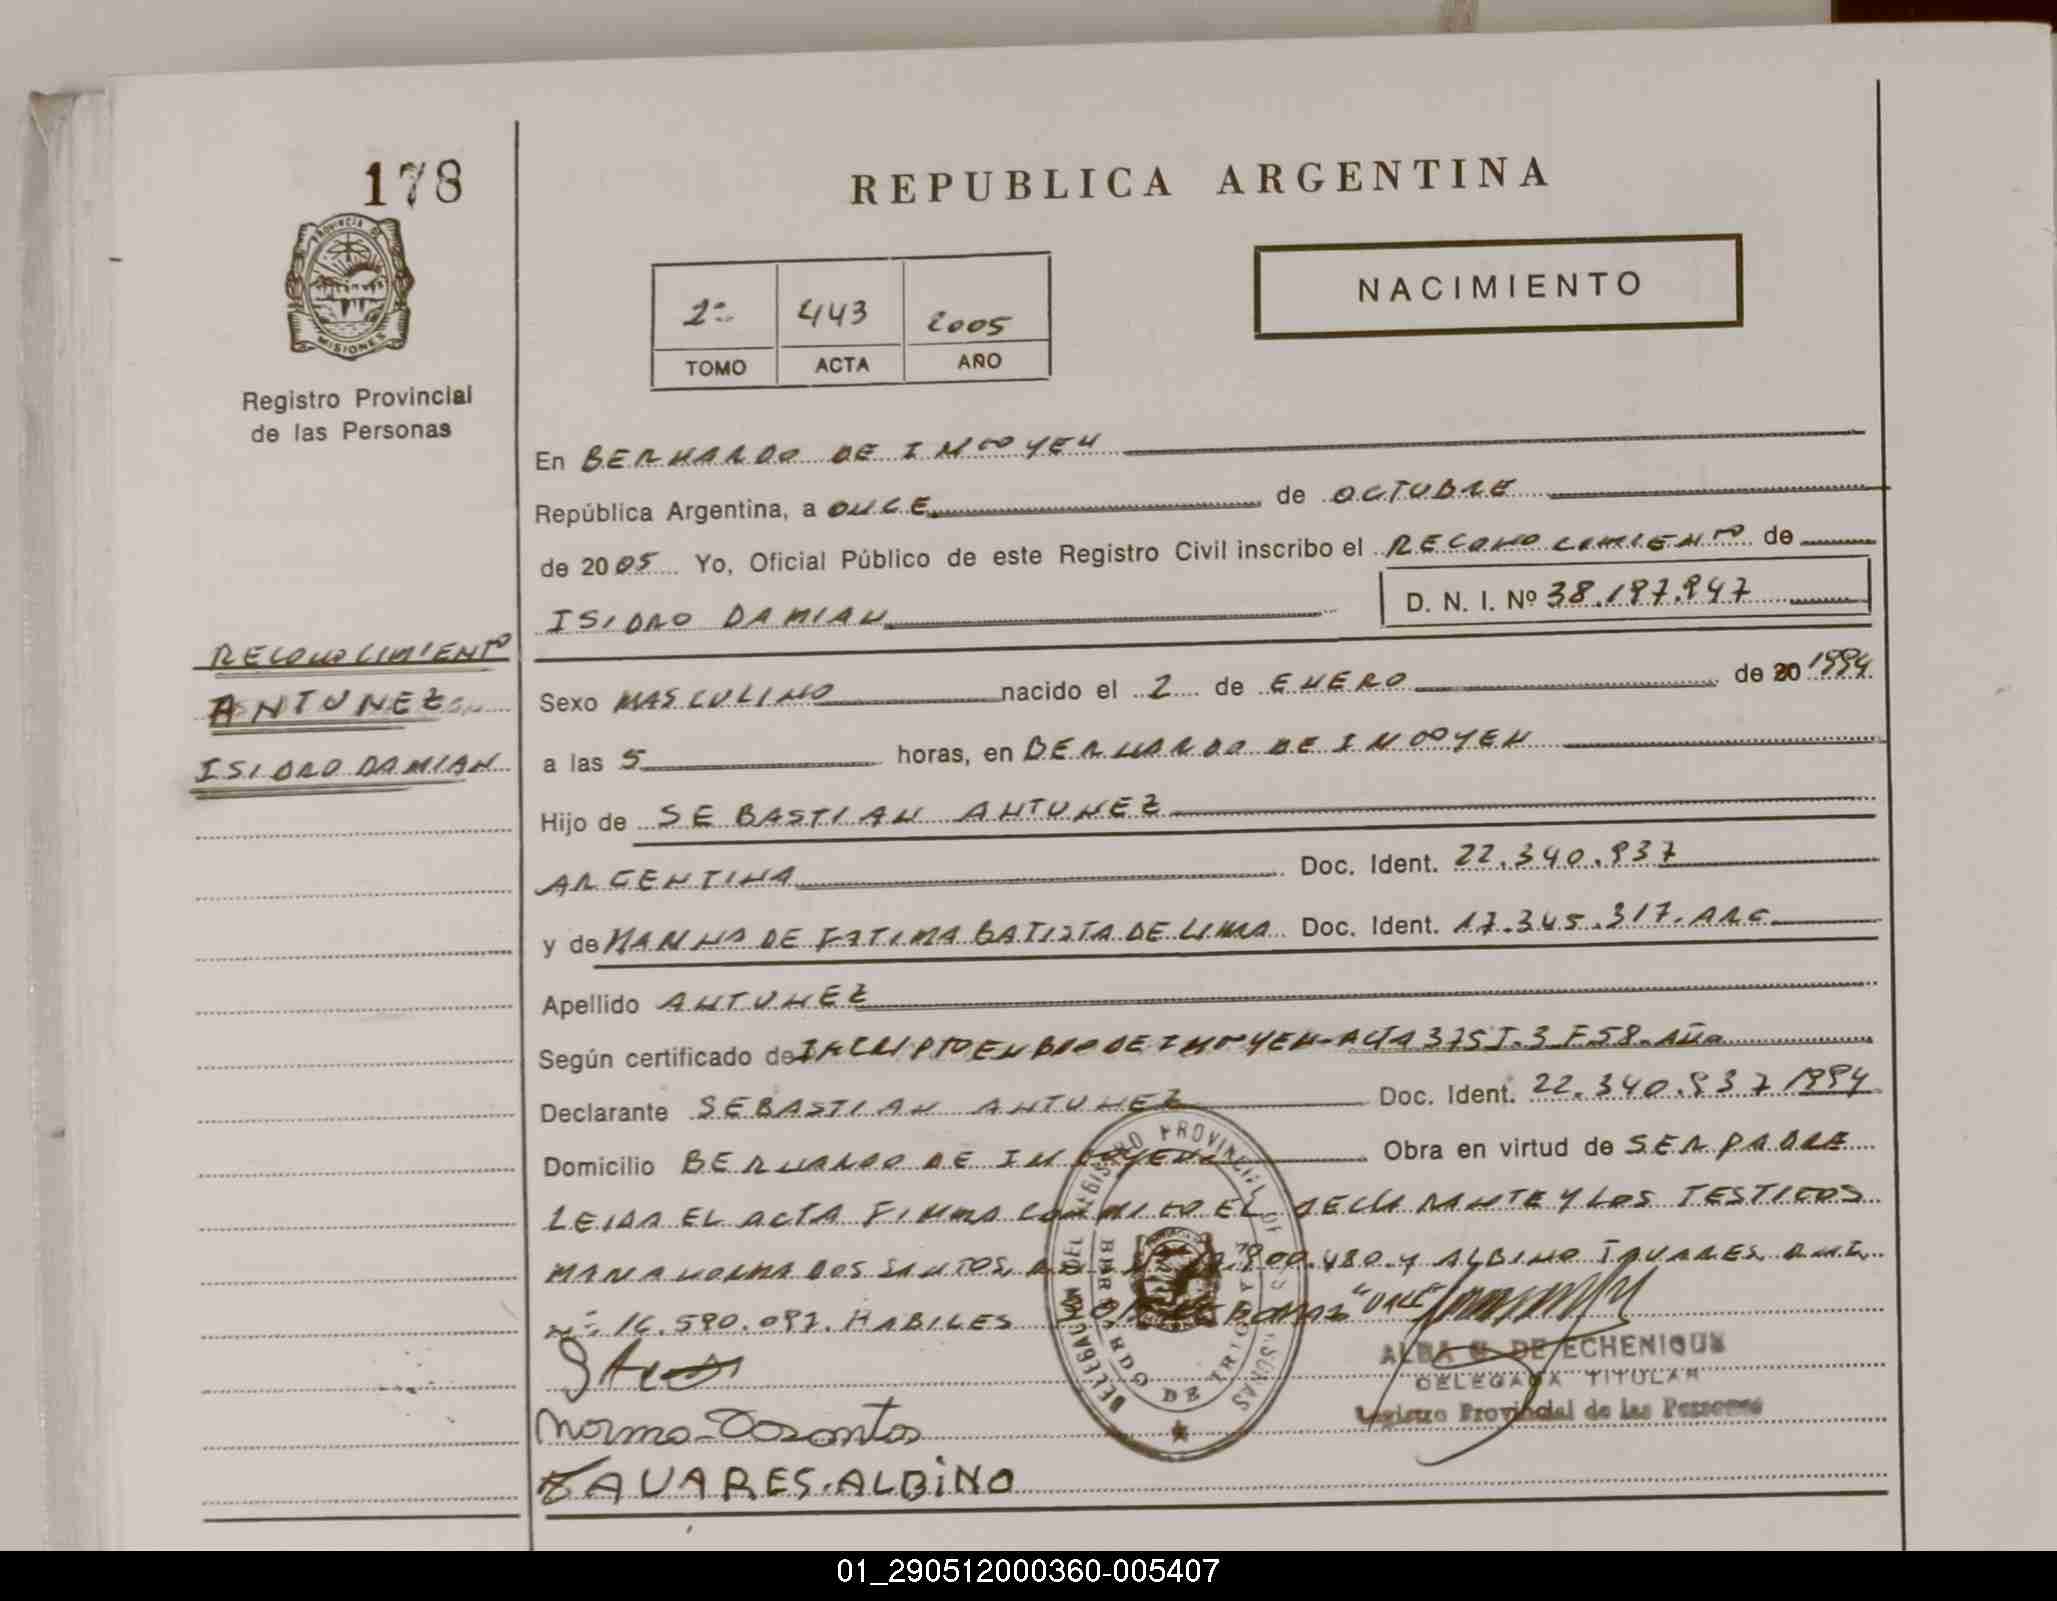 178
REPUBLICA ARGENTINA
PROVINCIA DE
MISIONES
NACIMIENTO
2º 443 2005
TOMO ACTA AÑO
Registro Provincial
de las Personas
En BERNARDO DE IRIGOYEN
República Argentina, a ONCE de OCTUBRE
de 2005 Yo, Oficial Público de este Registro Civil inscribo el RECONOCIMIENTO de
ISIDRO DAMIAN D. N. I. Nº 38.197.947
RECONOCIMIENTO
ANTUNEZ
ISIDRO DAMIAN
Sexo MASCULINO nacido el 2 de ENERO de 20 1994
a las 5 horas, en BERNARDO DE IRIGOYEN
Hijo de SEBASTIAN ANTUNEZ
ARGENTINA Doc. Ident. 22.340.937
y de DE FATIMA BATISTA DE LIMA Doc. Ident. 17.345.317. ARG
Apellido ANTUNEZ
Según certificado de INCRIPTO EN BDO DE IRIGOYEN-ACTA 375 T.3 F.58. AÑO
Declarante SEBASTIAN ANTUNEZ Doc. Ident. 22.340.937 1994
Domicilio BERNARDO DE IRIGOYEN Obra en virtud de SER PADRE
LEIDA EL ACTA FIRMA CONMIGO EL DECLARANTE Y LOS TESTIGOS
MARIA NORMA DOS SANTOS, 900.480. Y ALBINO TAVARES D.N.I.
Nº 16.590.097. HABILES
Norma Dosantos
TAVARES. ALBINO
DEL REGISTRO PROVINCIAL DE LAS PERSONAS
BERNARDO DE IRIGOYEN
ALBA DE ECHENIQUE
DELEGADA TITULAR
Registro Provincial de las Personas
01_290512000360-005407